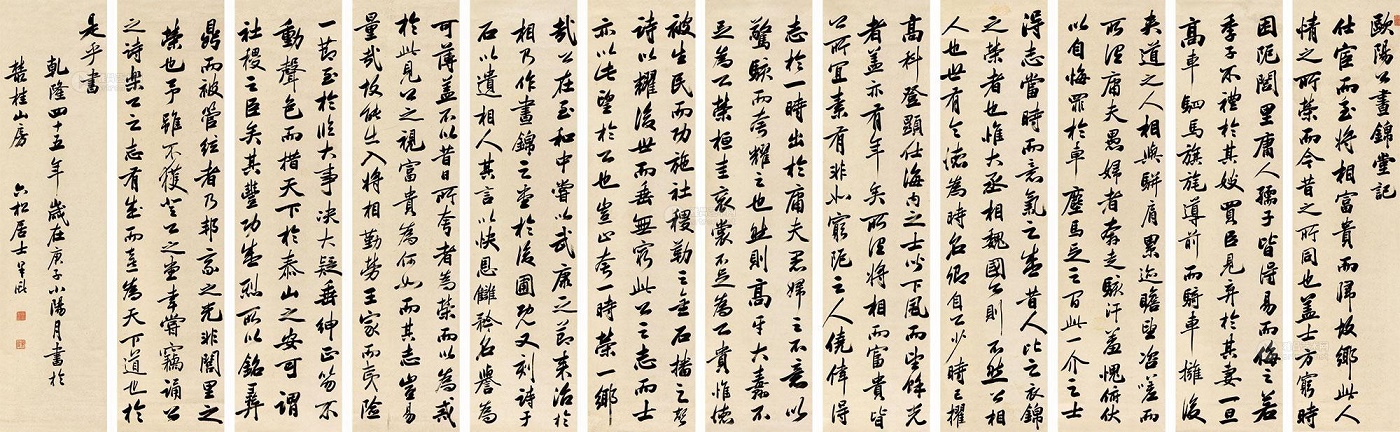 歐陽公晝錦堂記
仕宦而至將相富貴而歸故鄉此人
情之所榮而今昔之所同也蓋士方窮時
困阨閭里庸人孺子皆得易而侮之若
季子不禮於其嫂買臣見弃於其妻一旦
高車駟馬旗旄導前而騎卒擁後
夾道之人相與駢肩累迹瞻望咨嗟而
所謂庸夫愚婦者奔走駭汗羞愧俯伏
以自悔罪於車塵馬足之間此一介之士
得志當時而意氣之盛昔人比之衣錦
之榮者也惟大丞相魏國公則不然公相
人也世有令德為時名卿自公少時已擢
高科登顯仕海內之士聞下風而望餘光
者蓋亦有年矣所謂將相而富貴皆
公所宜素有非如窮阨之人僥倖得
志於一時出於庸夫愚婦之不意以
驚駭而夸耀之也然則高牙大纛不
足為公榮桓圭袞裳不足為公貴惟德
被生民而功施社稷勒之金石播之聲
詩以耀後世而垂無窮此公之志而士
亦以此望於公也豈止夸一時榮一鄉
哉公在至和中嘗以武康之節來治於
相乃作晝錦之堂於後圃既又刻詩于
石以遺相人其言以快恩讎矜名譽為
可薄蓋不以昔日所夸者為榮而以為戒
於此見公之視富貴為何如而其志豈易
量哉故能出入將相勤勞王家而夷險
一節至於臨大事决大疑垂紳正笏不
動聲色而措天下於泰山之安可謂
社稷之臣矣其豐功盛烈所以銘彝
鼎而被管絃者乃邦家之光非閭里之
榮也予雖不獲登公之堂幸嘗竊誦公
之詩樂公之志有成而喜為天下道也於
是乎書
乾隆四十五年歲在庚子小陽月書於
叢桂山房 六松居士